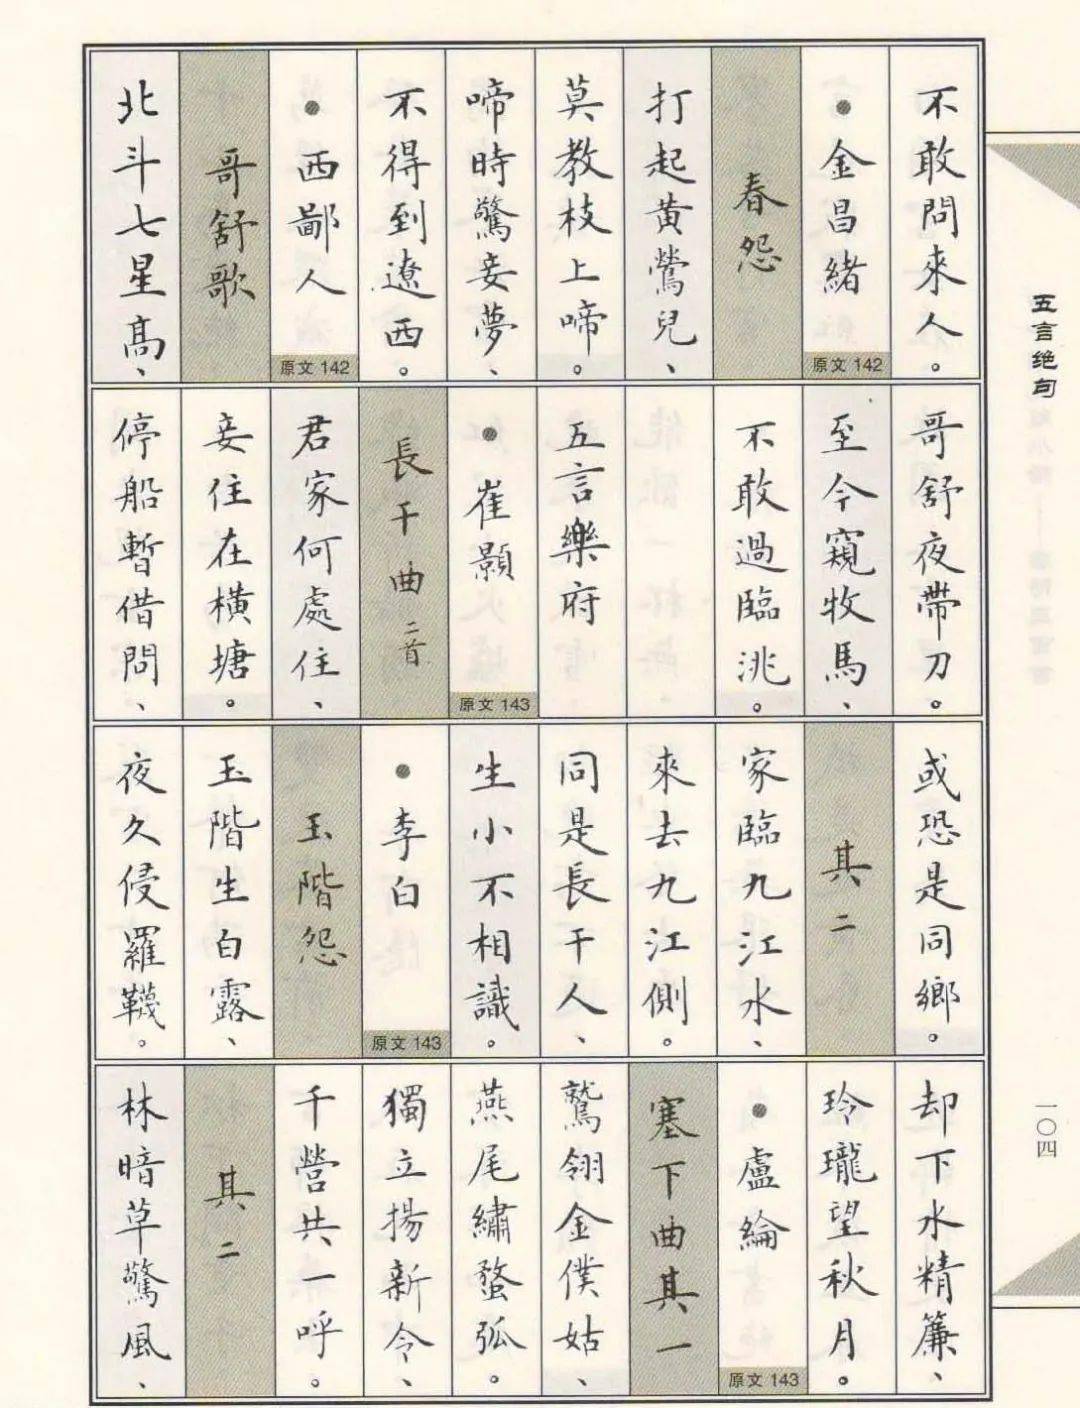 不敢問來人。
●金昌緒
原文 142
春怨
打起黃鶯兒、
莫教枝上啼。
啼時驚妾夢、
不得到遼西。
●西鄙人
原文 142
哥舒歌
北斗七星高、
哥舒夜帶刀。
至今窺牧馬、
不敢過臨洮。
五言樂府
●崔顥
原文 143
長干曲 二首
君家何處住、
妾住在橫塘。
停船暫借問、
或恐是同鄉。
其二
家臨九江水、
來去九江側。
同是長干人、
生小不相識。
●李白
原文 143
玉階怨
玉階生白露、
夜久侵羅韈。
却下水精簾、
玲瓏望秋月。
●盧綸
原文 143
塞下曲其一
鷲翎金僕姑、
燕尾繡蝥弧。
獨立揚新令、
千營共一呼。
其二
林暗草驚風、
五言绝句
一〇四